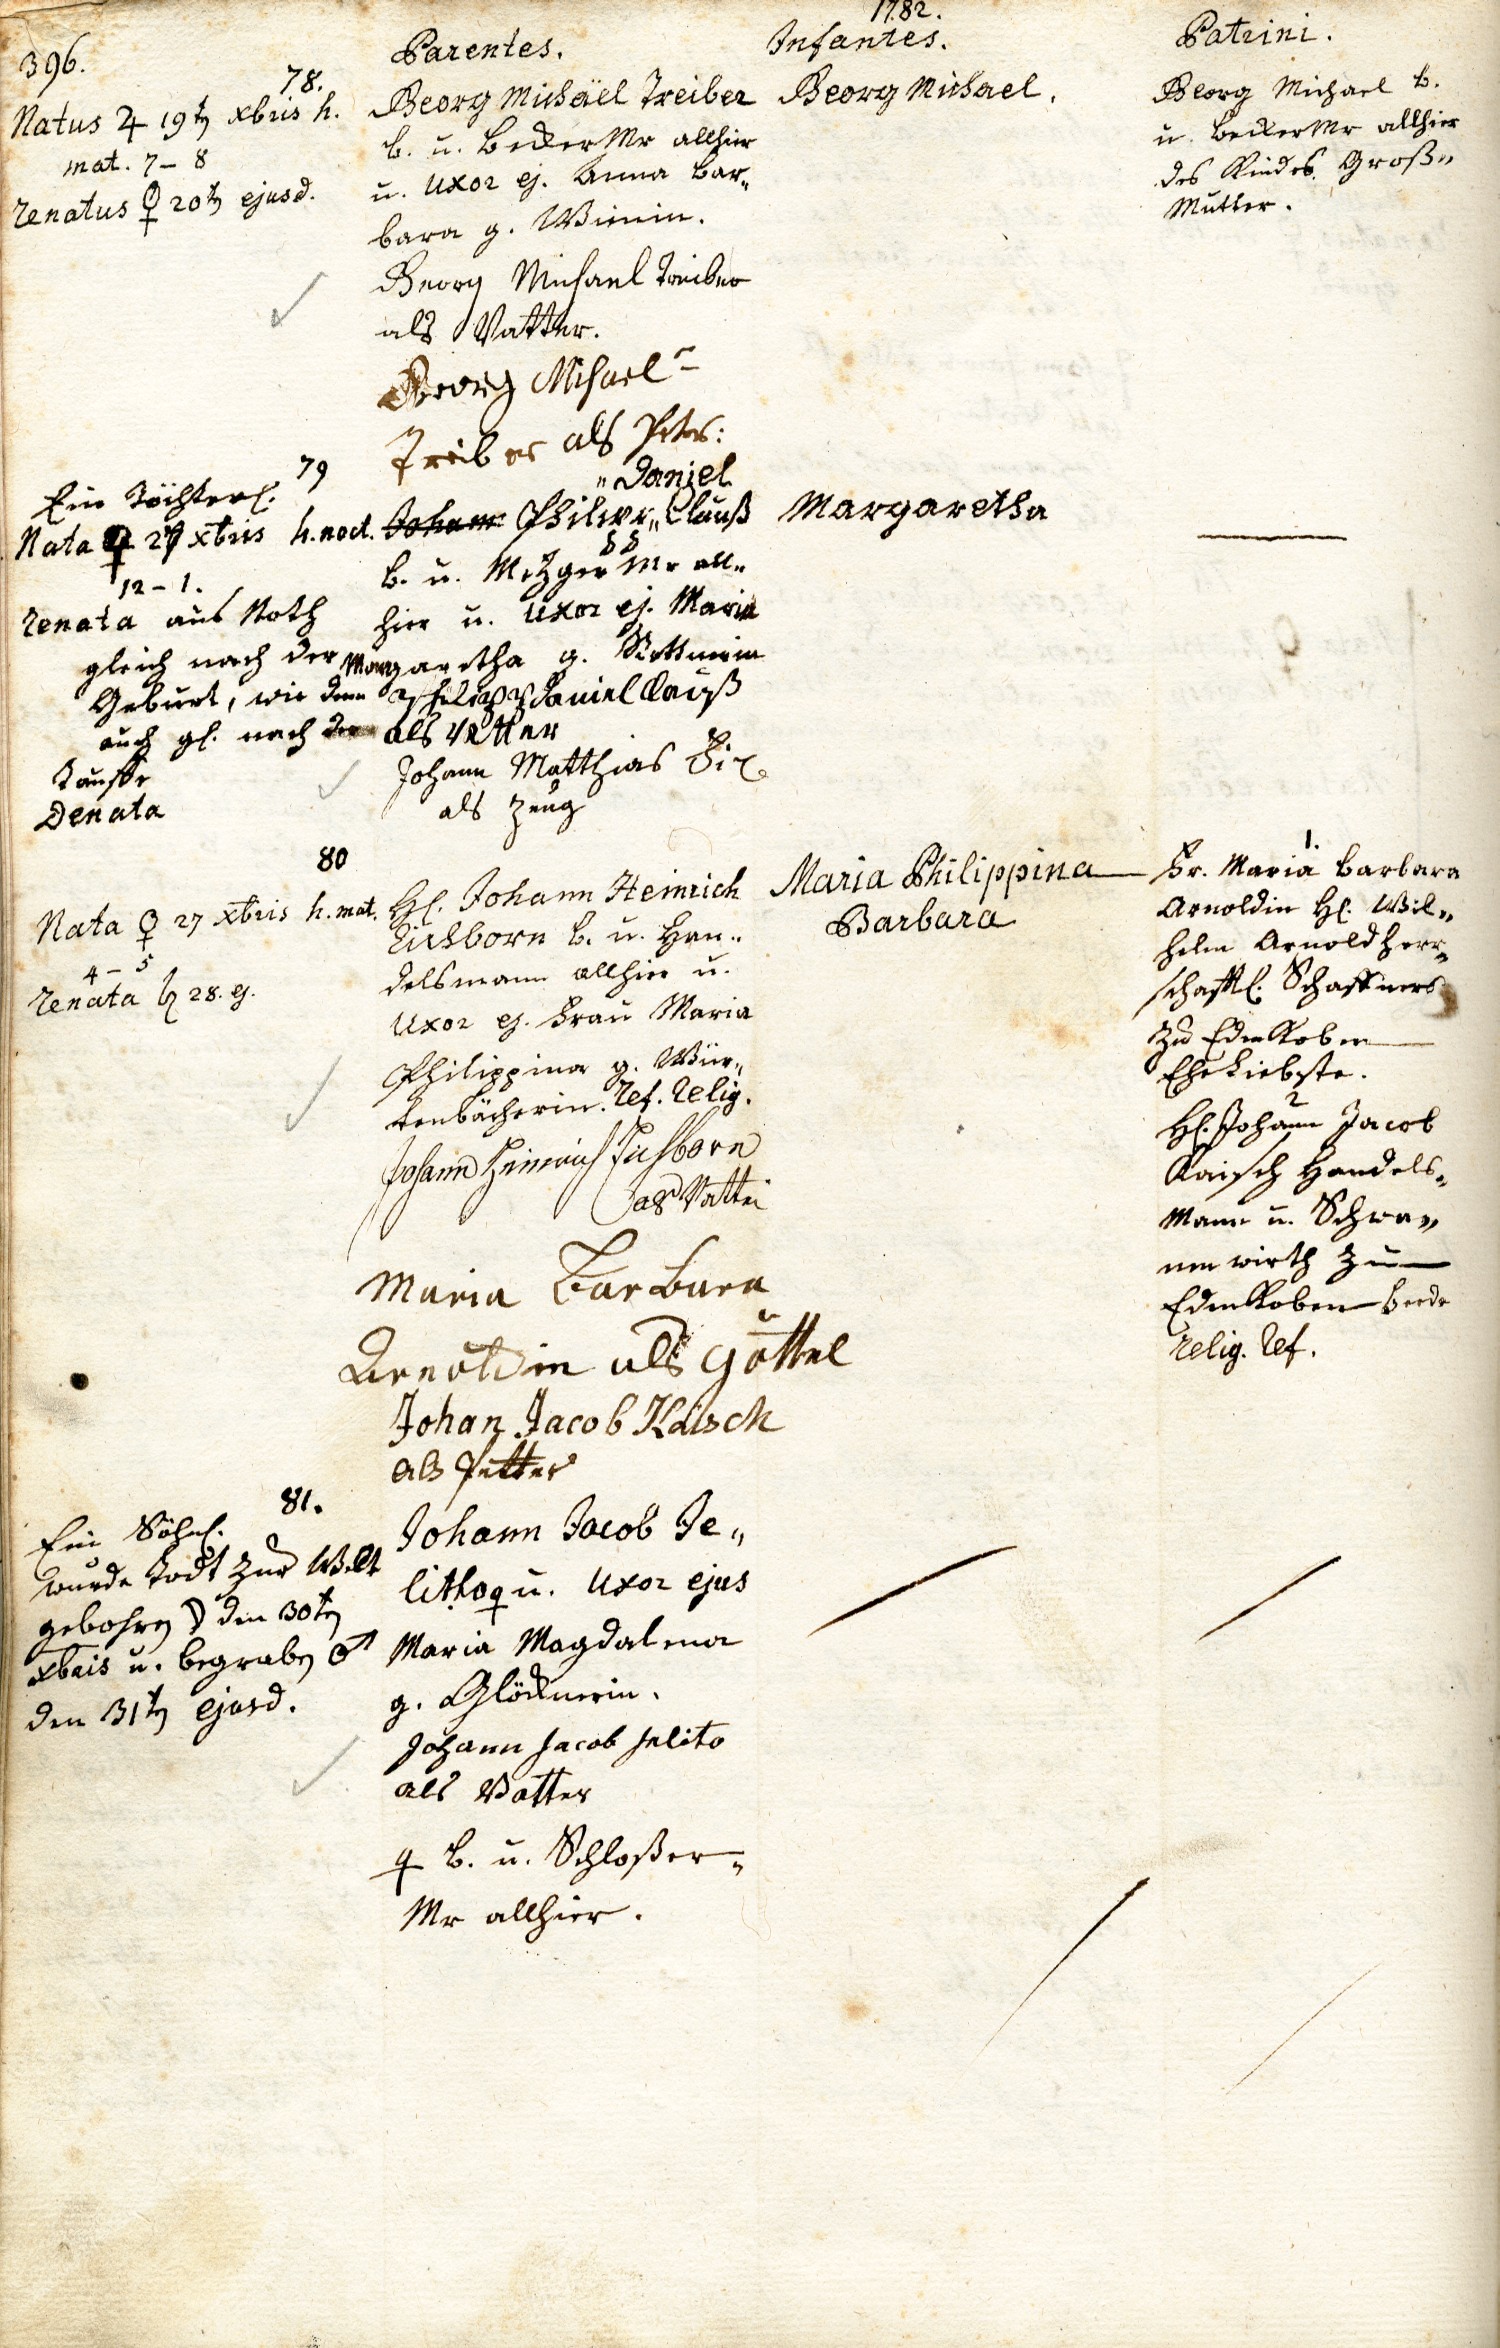 396.
1782.
Parentes.
Infantes.
Patrini.
78.
Natus ♃ 19t xbris h.
mat. 7 – 8
renatus ♀ 20t ejusd.
Georg Michäel Treiber
b. u. Becker Mr allhier
u. Uxor ej. Anna Bar„
bara g. Wimin.
Georg Michael Treiber
als Vatter.
Georg Michael
Treiber als Peter:
Georg Michael.
Georg Michael b.
u. Becker Mr allhier
des Kindes Groß„
Mutter.
79
Ein Töchterl.
Nata ♀ 27 xbris h. noct.
12 – 1.
renata aus Noth
gleich nach der
Geburt, wie denn
auch gl. nach der
Tauffe
Denata
„Daniel
Johann Philipp„ Clauß
b. u. Metzger Mr all„
hier u. Uxor ej. Maria
Margaretha g.
Philipp Daniel Clauß
als Vatter
Johann Matthias
als Zeug
Margaretha
80
Nata ♀ 27 xbris h. mat.
4 – 5
renata ♄ 28. ej.
H. Johann Heinrich
Eichborn b. u. Han„
delsmann allhier u.
Uxor ej. Frau Maria
Philippina g. Wür„
tenbächerin. ref. relig.
Johann Heinrich Eichborn
als Vatter
Maria Barbara
Arnoldin als Göttel
Johan Jacob Kaisch
als Petter
Maria Philippina
Barbara
1.
Fr. Maria Barbara
Arnoldin H. Wil„
helm Arnold herr„
schaftl. Schaffners
zu Edenkoben
Ehe Liebste.
2
H. Johann Jacob
Kaisch Handels„
Mann u. Schwa„
nen wirth zu
Edenkoben beede
relig. ref.
81.
Ein Söhnl.
wurde todt zur Welt
gebohren ☽ den 30t
xbris u. begraben ♂
den 31t ejusd.
Johann Jacob Je„
litho u. Uxor ejus
Maria Magdalena
g. Glöcknerin.
Johann Jacob Jelito
als Vatter
b. u. Schloßer„
Mr allhier.